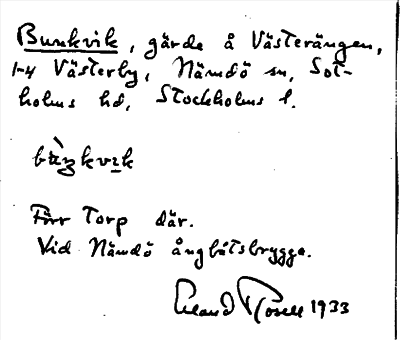 Bunkvik, gärde å Västerängen,
1-4 Västerby, Nämdö sn, Sot-
holms hd, Stockholms l.
bùŋkvik
Förr torp där.
Vid Nämdö ångbåtsbrygga.
Erland Rosell 1933